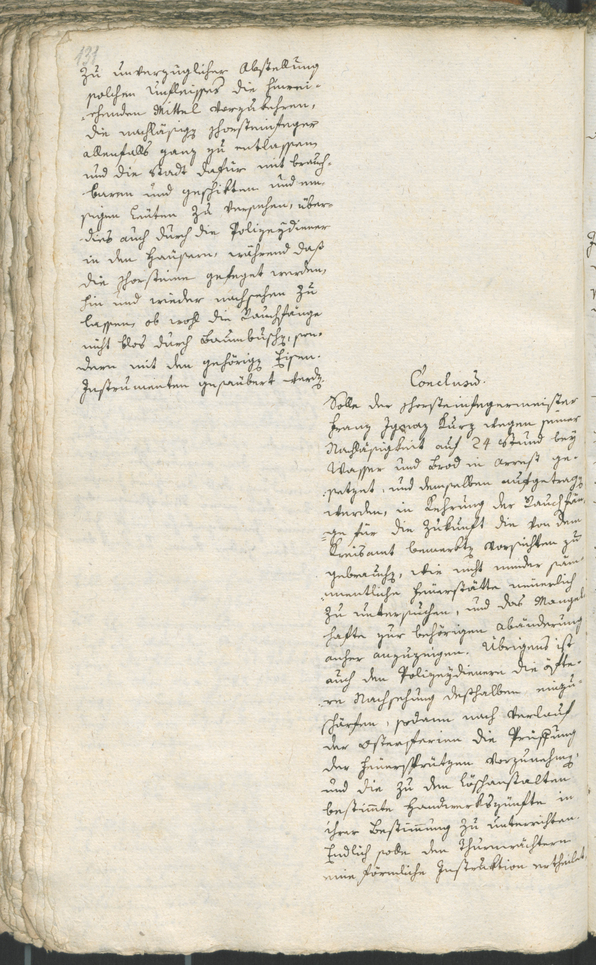 131
Zu unverzüglicher Abstellung
solchen Unfleisses die hinrei-
chenden Mittel vorzukehren,
die nachläsige Schorsteinfeger
allenfalls ganz zu entlassen
und die Stadt dafür mit brauch-
baren und geschikten und em-
sigen Leuten zu versehen, über-
dies auch durch die Polizeydiener
in den Häusern, während daß
die Schorsteine gefeget werden,
hin und wieder nachsehen zu
lassen, ob wohl die Rauchfänge
nicht blos durch Baumbüsche, son-
dern mit den gehörige Eisen-
Instrumenten gesäubert werde.
Conclusum.
Solle der Schorsteinfegermeister
Franz Ignaz Kurz wegen seiner
Nachläsigkeit auf 24 Stund bey
Wasser und Brod in Arrest ge-
setzet, und demselben aufgetrage
werden, in Kehrung der Rauchfän-
ge für die Zukunft die von dem
Kreisamt bemerkte Vorsichten zu
gebrauche, wie nicht minder säm-
mentliche Feuerstätte neuerlich
zu untersuchen, und das Mangel
hafte zur behörigen Abänderung
anher anzuzeigen. Übrigens ist
auch den Polizeydienern die öfte-
re Nachsehung desthalben einzu-
schärfen, sodann nach Verlauf
der Osterferien die Prüffung
der Feuersprützen vorzunehme,
und die zu dem Löschanstalten
bestimmte Handwerkszünfte in
ihrer Bestimmung zu unterrichten.
Endlich solle den Thurnwächtern
eine förmliche Instruktion ertheilet